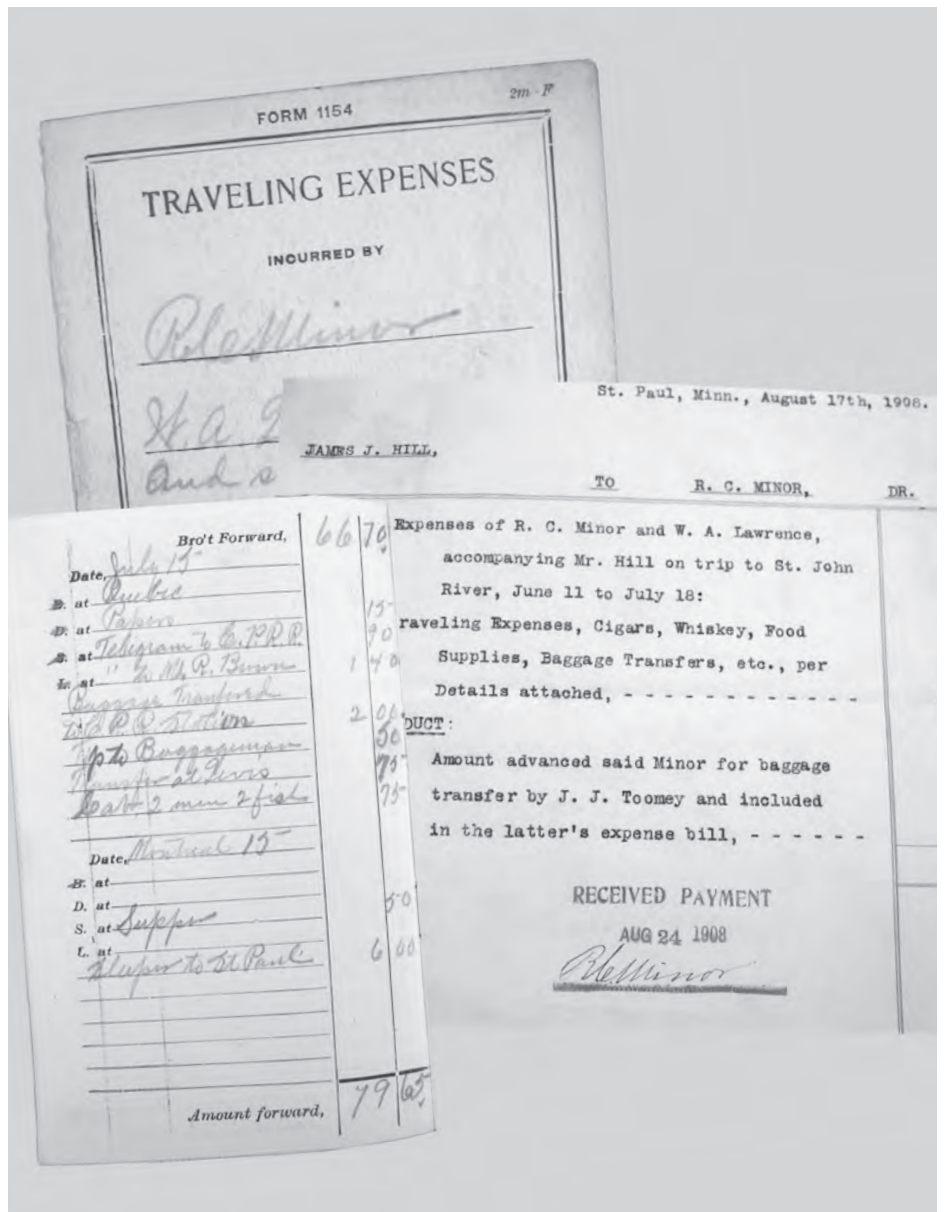 FORM 1154
2m - F
TRAVELING EXPENSES
INCURRED BY
R. C. Minor
W. A.
and s
St. Paul, Minn., August 17th, 1908.
JAMES J. HILL,
TO R. C. MINOR, DR.
Expenses of R. C. Minor and W. A. Lawrence,
accompanying Mr. Hill on trip to St. John
River, June 11 to July 18:
raveling Expenses, Cigars, Whiskey, Food
Supplies, Baggage Transfers, etc., per
Details attached, - - - - - - - - - - - -
DUCT:
Amount advanced said Minor for baggage
transfer by J. J. Toomey and included
in the latter's expense bill, - - - - - -
RECEIVED PAYMENT
AUG 24 1908
R. C. Minor
Bro't Forward, 66 70
Date, July 15
B. at Quebec
D. at Papers 15
S. at Telegram to C.P.R.R. 90
L. at " to M. R. Brown 1 40
Baggage Transfered
to C. P. R. Station 2 00
Tip to Baggageman 50
Transfer at Levis 75
Cab. 2 men 2 fish 75
Date, Montreal 15
B. at
D. at
S. at Supper 50
L. at
Sleeper to St Paul 6 00
Amount forward, 79 65